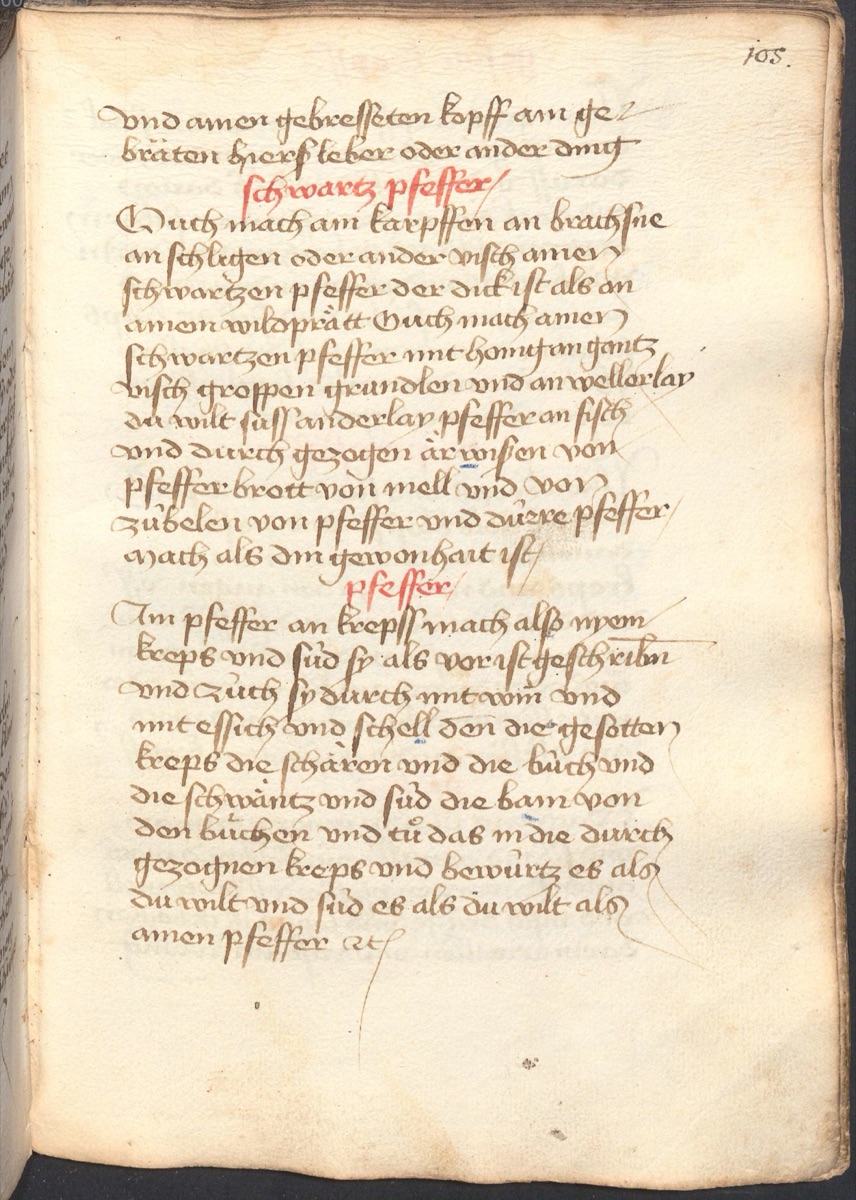 105.
vnd ainen gebresseten kopff ain ge
bräten hiersß leber oder ander ding
schwartz pfeffer
Ouch mach ain karpffen an brachsne
an schligen oder ander visch ainen
schwartzen pfeffer der dick ist als an
ainem wildprätt Ouch mach ainen
schwartzen pfeffer mit honig an gantz
visch groppen grundlen vnd an wellerlay
du wilt suss anderlay pfeffer an fisch
vnd durch gezogen ärwisen von
pfeffer brott von mell vnd von
zübelen von pfeffer vnd dürre pfeffer
mach als din gewonhait ist
pfeffer
Ain pfeffer an krepss mach also nyem
kreps vnd süd sy als vor ist geschribn̄
vnd züch sy durch mit win vnd
mit essich vnd schell den̄ die gesotten
kreps die schären vnd die büch vnd
die schwäntz vnd süd die bain von
den büchen vnd tů das in die durch
gezognen kreps vnd bewürtz es als
du wilt vnd süd es als du wilt als
ainen pfeffer ⁊c